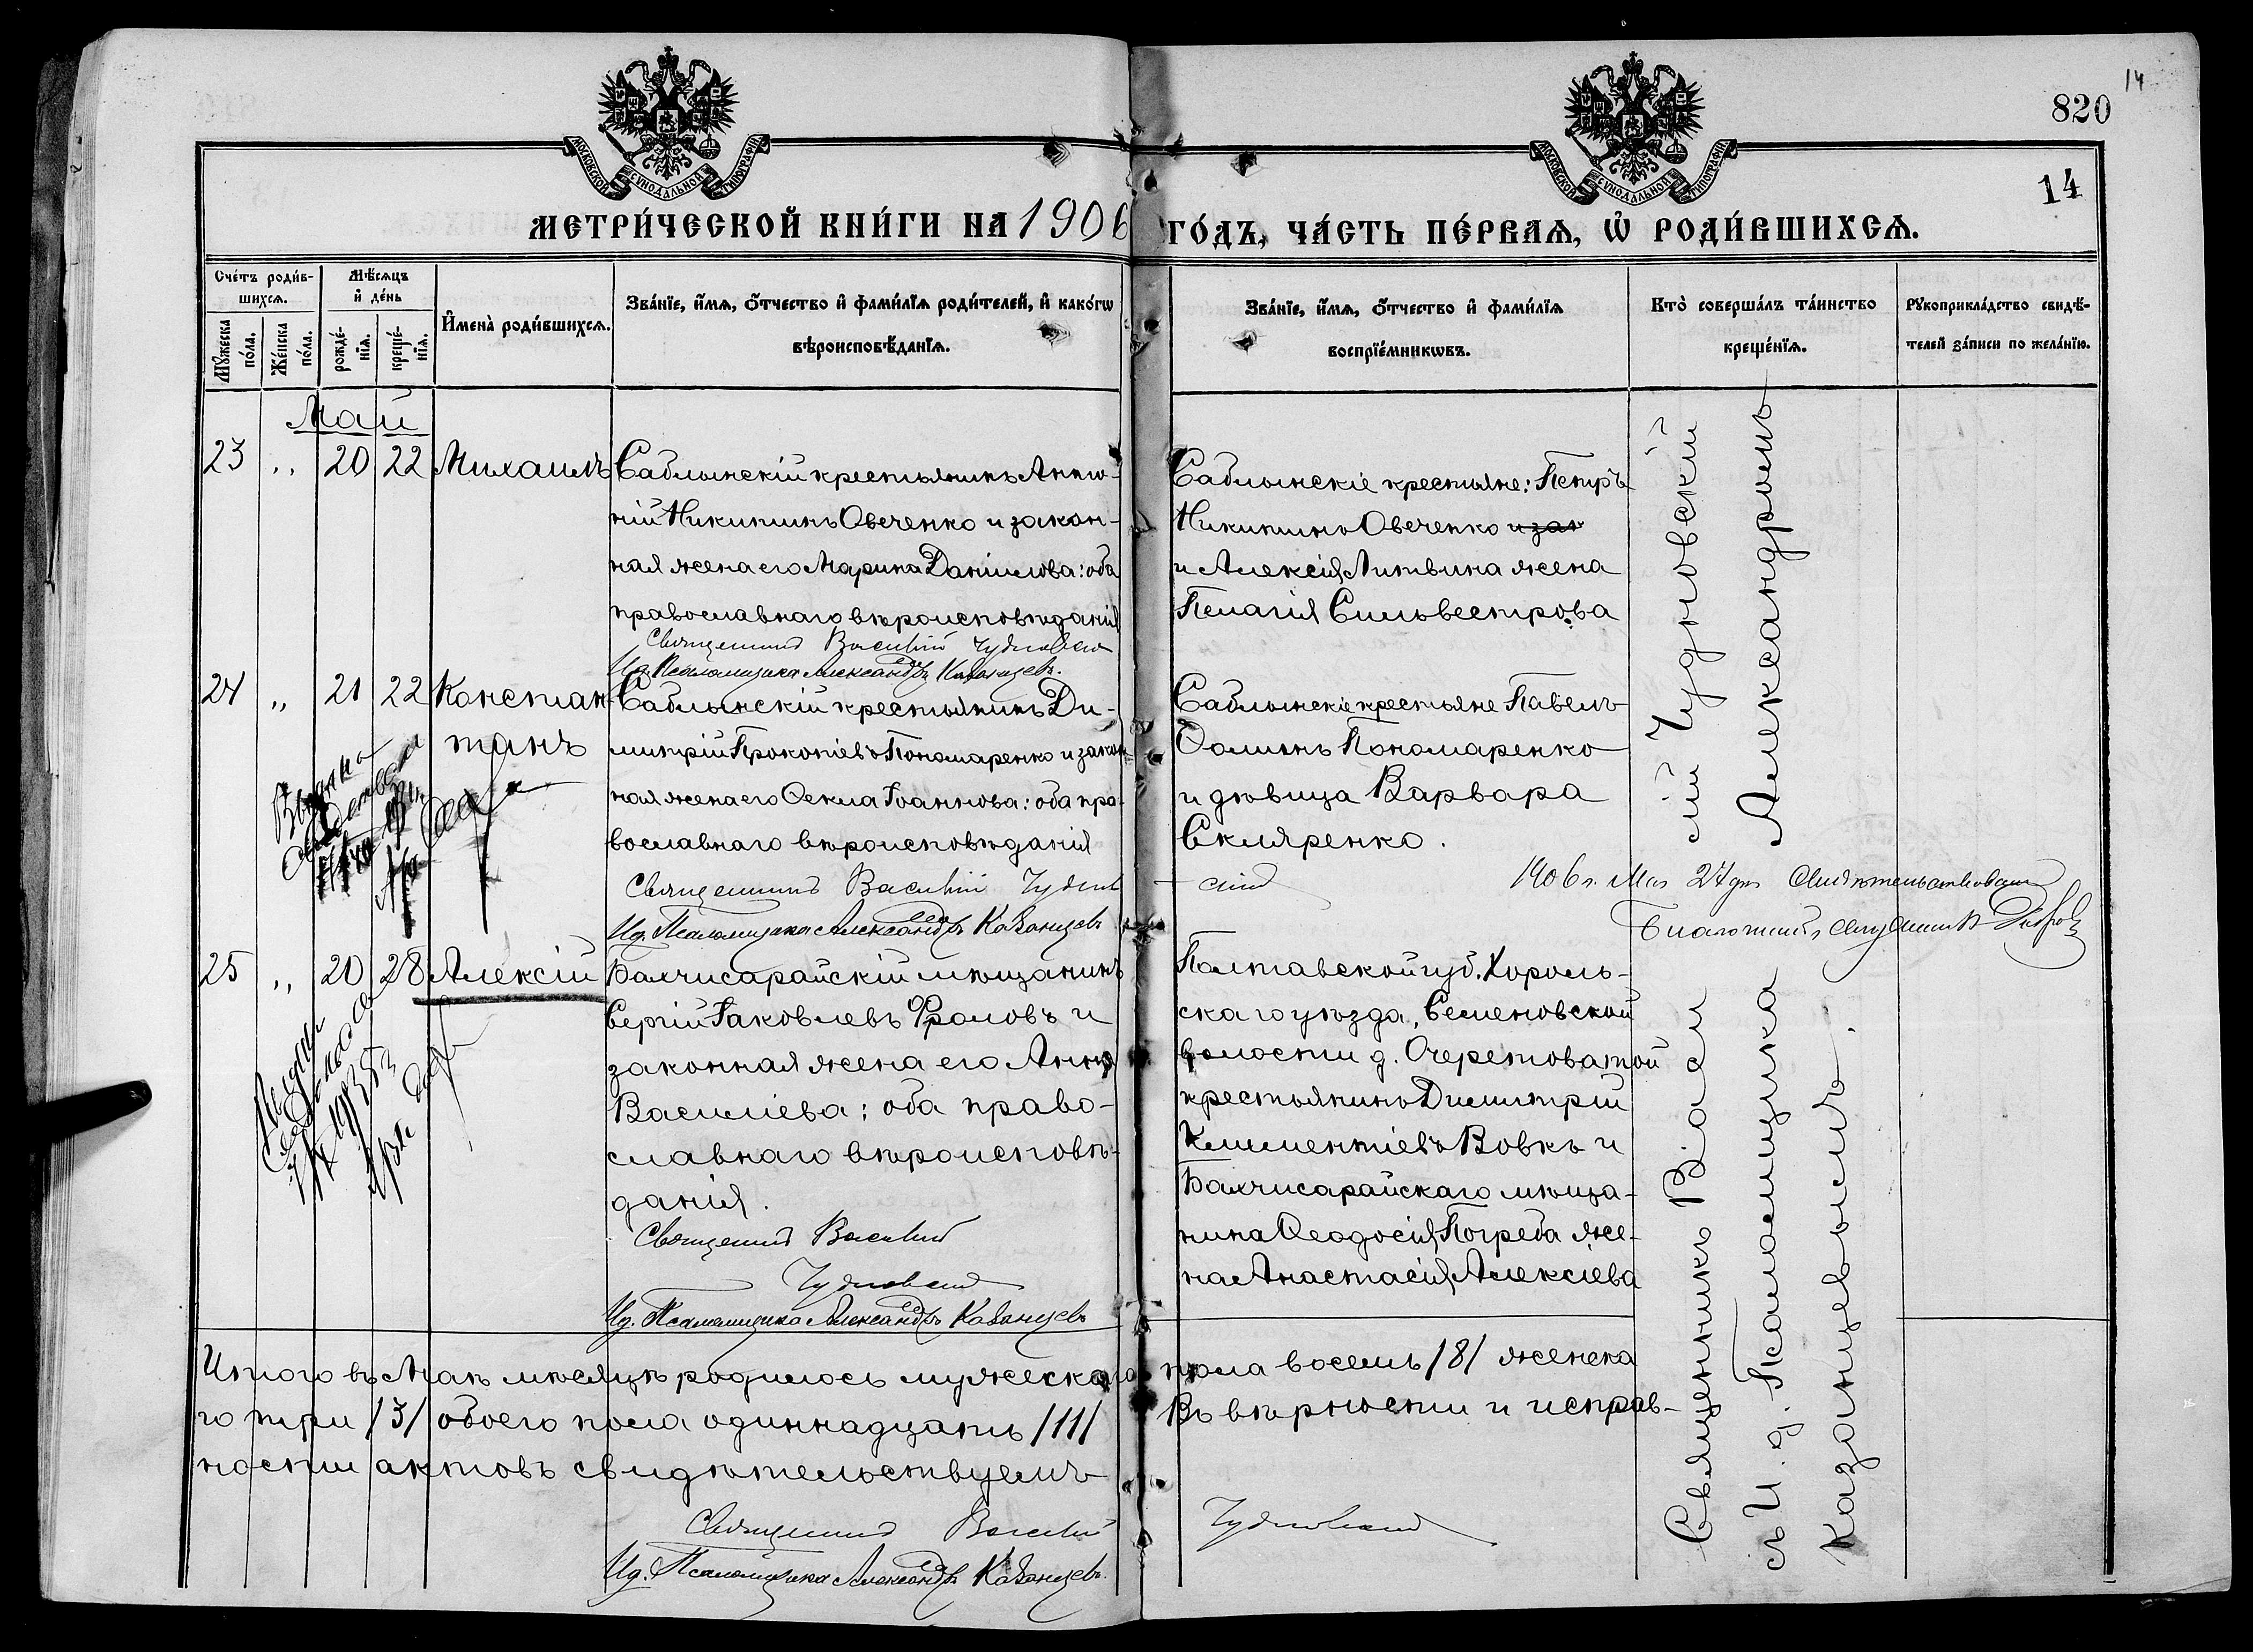 14
820
14
МОСКОВСКОЙ СѴНОДАЛЬНОЙ ТИПОГРАФІИ
МОСКОВСКОЙ СѴНОДАЛЬНОЙ ТИПОГРАФІИ
МЕТРИ́ЧЕСКОЙ КНИ́ГИ НА 1906 ГО́ДЪ, ЧА́СТЬ ПЕ́РВАѦ, Ѡ҆ РОДИ́ВШИХСѦ.
Сче́тъ роди́в-
шихсѧ.
Мѣ́сѧцъ
и҆ де́нь
Мꙋ́жеска
по́ла.
Же́нска
по́ла.
рожде́-
нїѧ.
креще́-
нїѧ.
И҆мена̀ роди́вшихсѧ.
Зва́нїе, и҆́мѧ, ѻ҆́тчество и҆ фами́лїѧ роди́телей, и҆ како́гѡ
вѣроисповѣ́данїѧ.
Зва́нїе, и҆́мѧ, ѻ҆́тчество и҆ фами́лїѧ
воспрїе́мникѡвъ.
Кто̀ соверша́лъ та́инство
креще́нїѧ.
Рꙋкоприкла́дство свидѣ́-
телей за́писи по жела́нїю.
Май
23 „ 20 22 Михаилъ
Саблынскій крестьянинъ Анто-
ній Никитинъ Овченко и закон-
ная жена его Марина Даніилова: оба
православнаго вѣроисповѣданія
Священникъ Василій Чудновскій
И.д. Псаломщика Александръ Казанцевъ.
Саблынскіе крестьяне: Петръ
Никитинъ Овченко и зак
и Алексія Литвина жена
Пелагія Сильвестрова
24 „ 21 22 Констан-
тинъ
Саблынскій крестьянинъ Ди-
митрій Прокопіевъ Пономаренко и закон-
ная жена его Ѳекла Іоаннова: оба пра-
вославнаго вѣроисповѣданія
Священникъ Василій Чудновскій
И.д. Псаломщика Александръ Казанцевъ
Саблынскіе крестьяне Павелъ
Ѳоминъ Пономаренко
и дѣвица Варвара
Скляренко.
1906 г. Мая 27 дня Свидѣтельствовалъ
Благочинный, священникъ
25 „ 20 28 Алексій
Бахчисарайскій мѣщанинъ
Сергій Іаковлевъ Фроловъ и
законная жена его Анна
Василіева: оба право-
славнаго вѣроисповѣ-
данія.
Священникъ Василій
Чудновскій
И.д. Псаломщика Александръ Казанцевъ
Полтавской губ. Хороль-
скаго уѣзда, Семеновской
волости д. Очеретоватой
крестьянинъ Димитрій
Климентіевъ Вовкъ и
Бахчисарайскаго мѣща-
нина Ѳеодосія Погреба же-
на Анастасія Алексіева
Священникъ Василій Чудновскій
съ И.д. Псаломщика Александромъ
Казанцевымъ.
Итого въ Маѣ мѣсяцѣ родилось мужескаго пола восемь /8/ женска
го три /3/ обоего пола одиннадцать /11/ Въ вѣрности и исправ-
ности актовъ свидѣтельствуемъ
Священникъ Василій Чудновскій
И.д. Псаломщика Александръ Казанцевъ.